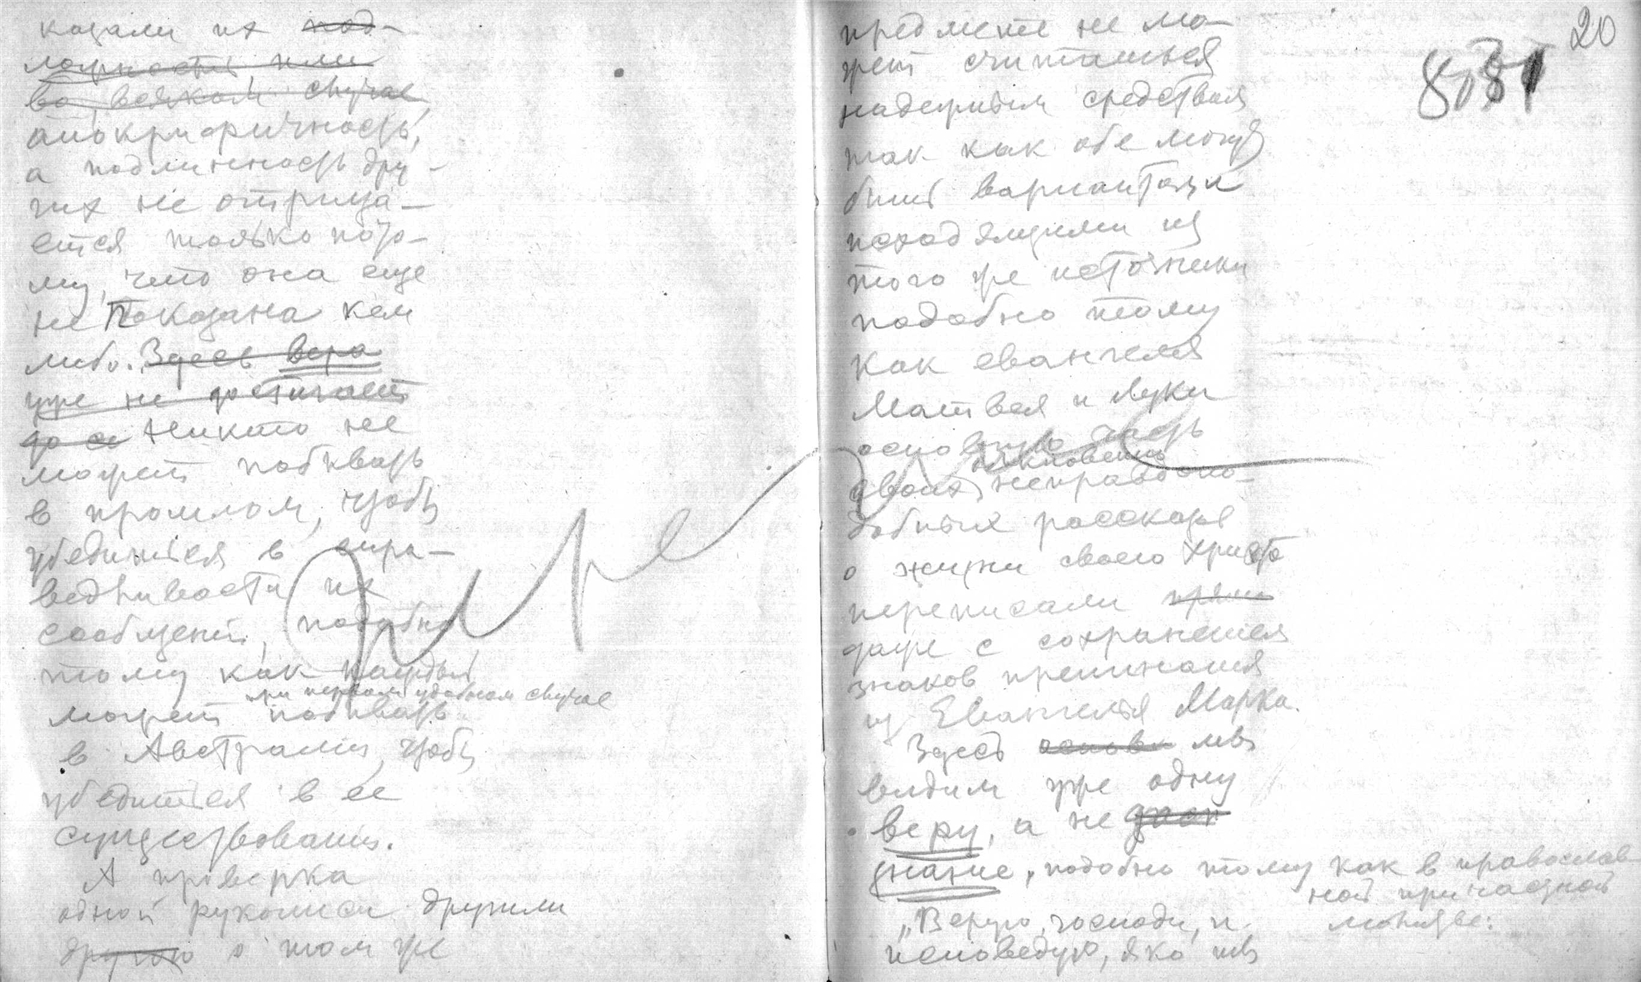 казали их под-
ложность или
во всяком случае
апокрифичность,
а подлинность дру-
гих не отрица-
ется только пото-
му, что она еще
не показана кем
либо. Здесь вера
уже не достигает
до се Никто не
может побывать
в прошлом, чтобы
убедиться в спра-
ведливости их
сообщений, подобно
тому как каждый
при первом удобном случае
может побывать
в Австралии, чтобы
убедиться в ее
существовании.
А проверка
одной рукописи другими
другою о том же
20
8381
предмете не мо-
жет считаться
надежным средством
так как обе могут
быть вариантами
исходящими из
того же источника
подобно тому
как евангелия
Матвея и Луки
основную часть
своих неправдопо-
добных рассказов
о жизни своего Христа
переписали прямо
даже с сохранением
знаков препинания
из Евангелия Марка.
Здесь основа мы
видим уже одну
веру, а не
знание, подобно тому как в православ
ной причастной
молитве:
„Верую, господи, и
исповедую, яко ты